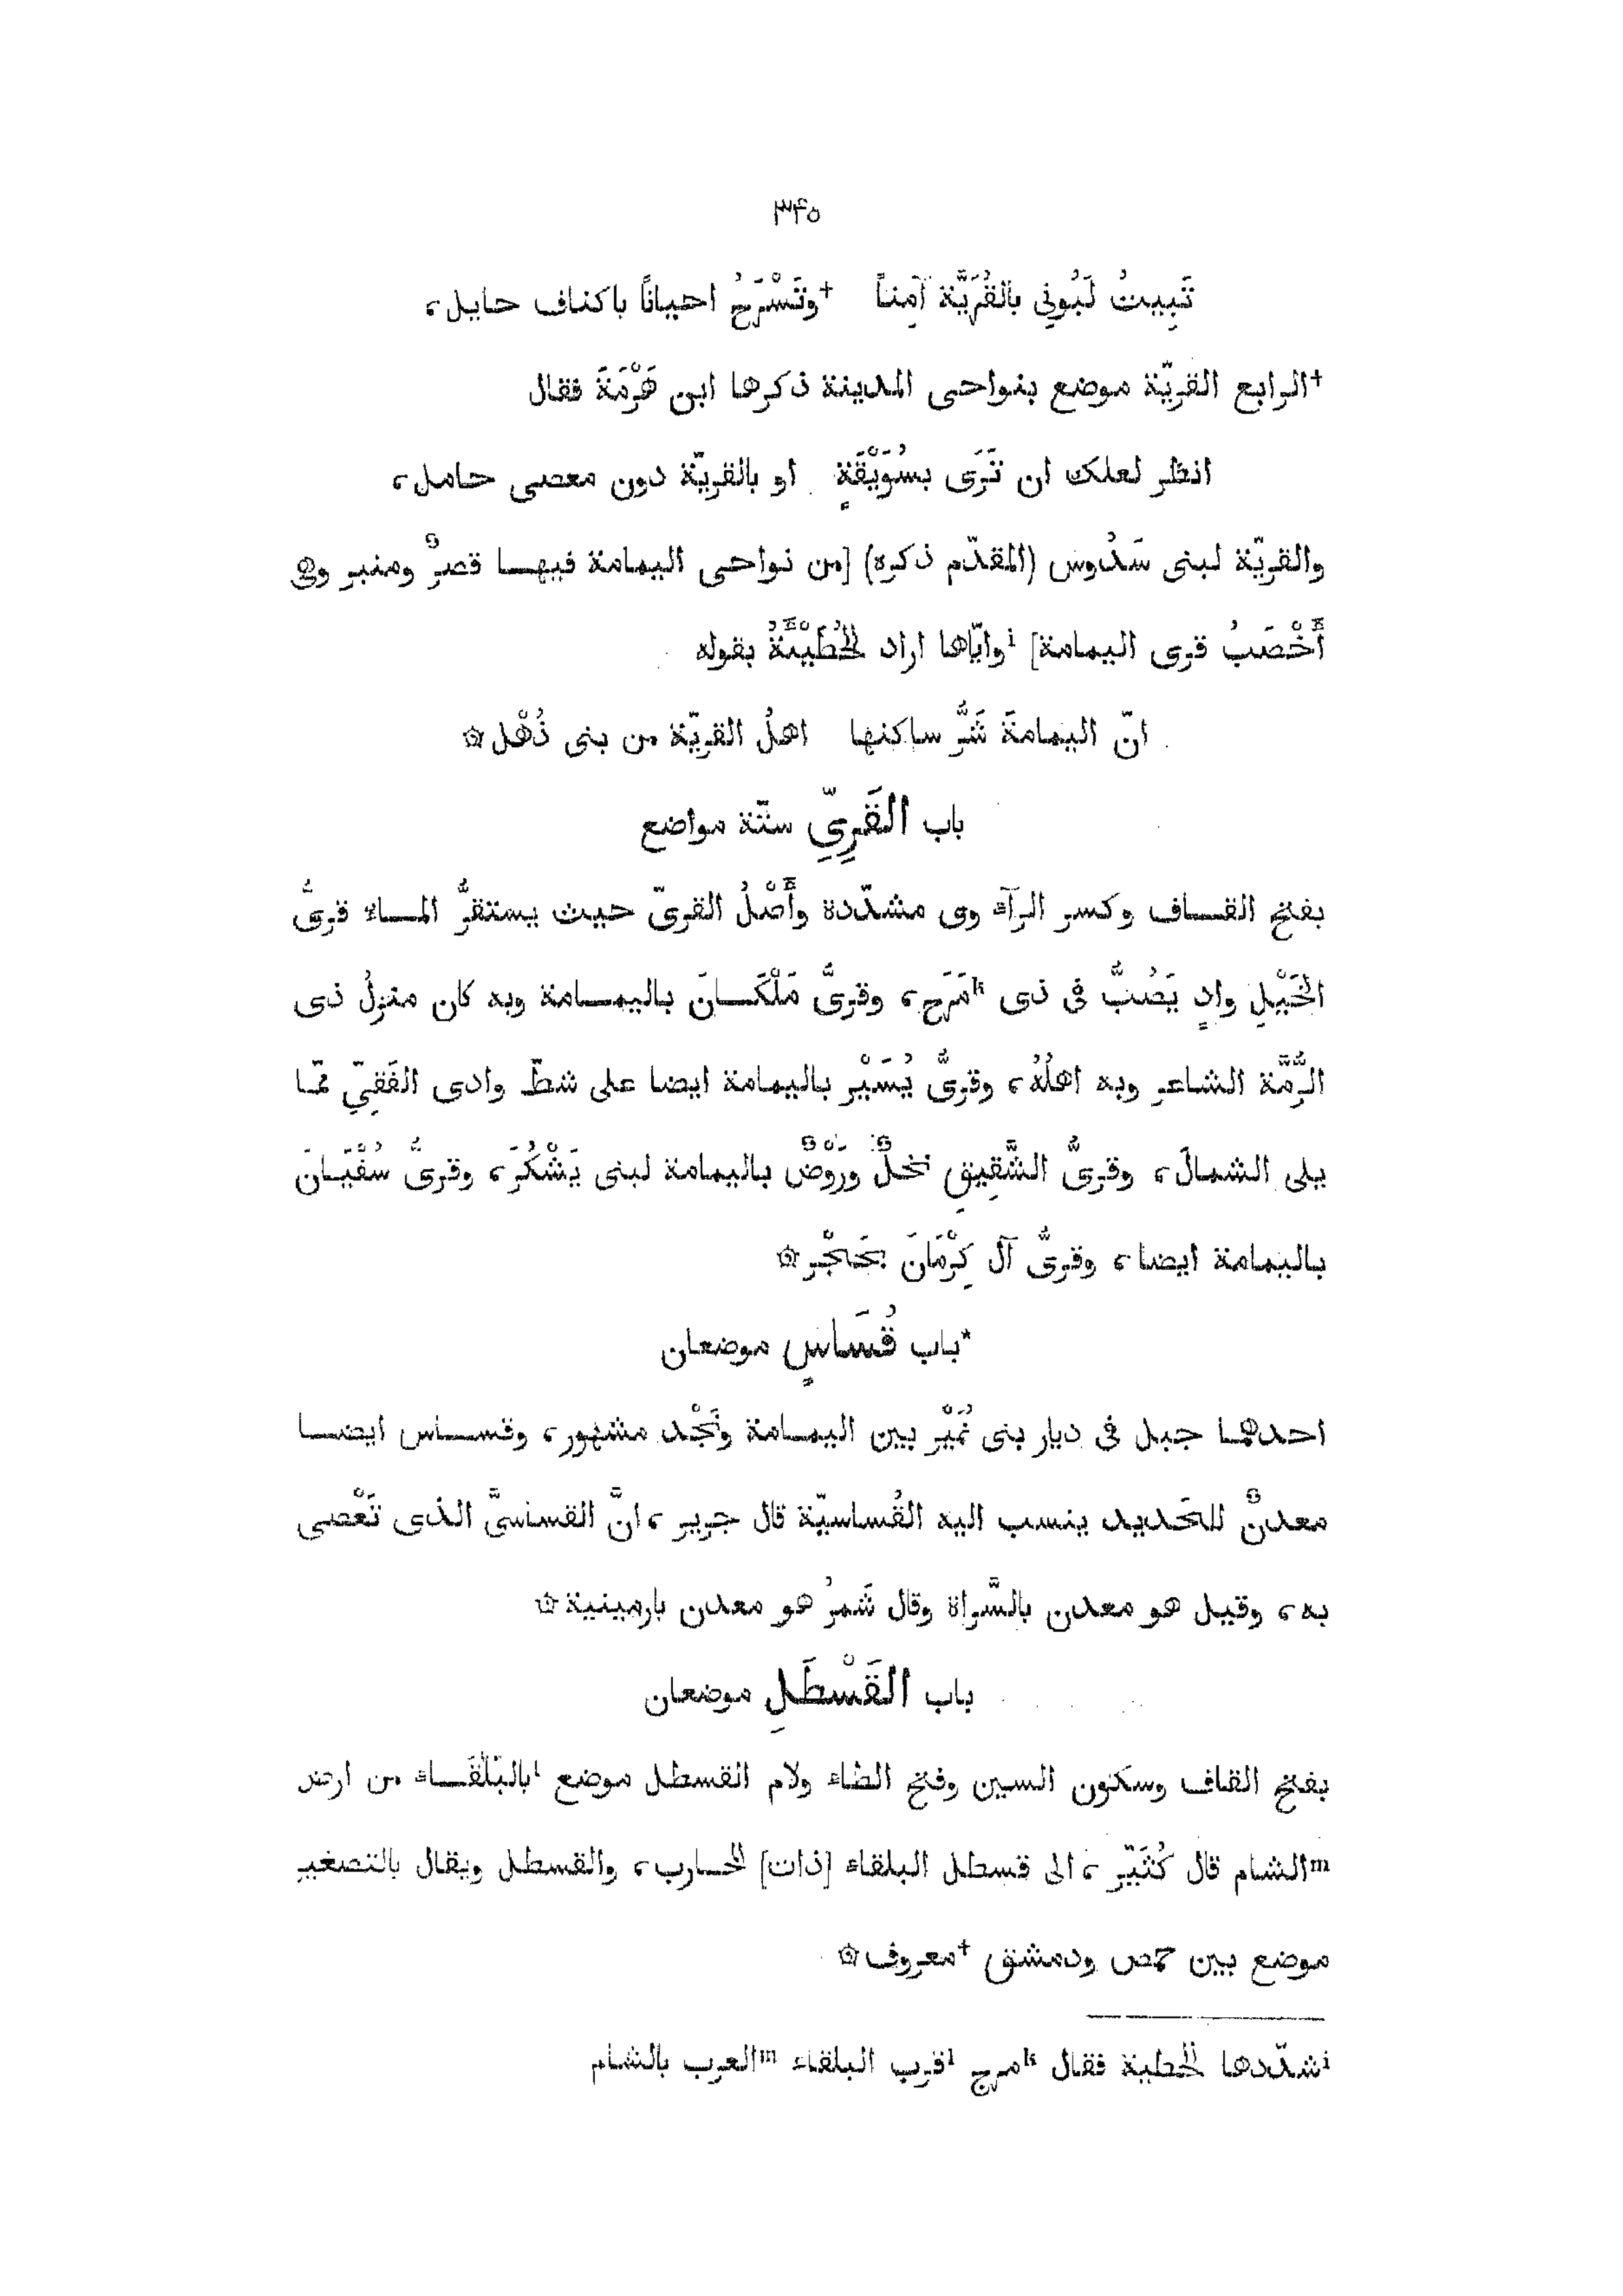 ٣٤٥
تَبِيتُ لَبُونِي بالقُرَيَّة آمِناً †وتَسْرَحُ احياناً باكناف حايل،
†الرابع القريّة موضع بنواحى المدينة ذكرها ابن هَرْمَةَ فقال
انظر لعلك ان تَرَى بسُوَيْقَةٍ او بالقريّة دون معصى حامل،
والقريّة لبنى سَدُوس (المقدّم ذكره) [من نواحى اليمامة فيهـا قصرٌ ومنبر وهى
أَخْصَبُ قرى اليمامة] ⁱوايّاها اراد الحُطَيْئَةُ بقوله
انّ اليمامةَ شَرُّ ساكنها اهلُ القريّة من بنى ذُهْل۞
باب القَرِيِّ ستّة مواضع
بفتح القـاف وكسر الرآء وى مشدّدة وأَصْلُ القرىّ حيث يستقرُّ المـاء قرىُّ
الخَبَيْلِ وادٍ يَصُبُّ فى ذى ᵏمَرَح، وقرىُّ مَلْكَـانَ باليمـامة وبه كان منزلُ ذى
الرُّمَّة الشاعر وبه اهلُهُ، وقرىُّ يُسَيْر باليمامة ايضا على شطّ وادى الفَقِيّ ممّا
يلى الشمالَ، وقرىُّ الشَّقِيقِ نخلٌ ورَوْضٌ باليمامة لبنى يَشْكُرَ، وقرىُّ سُفْيَـانَ
باليمامة ايضا، وقرىُّ آل كِرْمَانَ بحَجْر۞
*باب قُسَاسٍ موضعان
احدهمـا جبل فى ديار بنى نُمَيْر بين اليمـامة ونَجْد مشهور، وقسـاس ايضـا
معدنٌ للحَديد ينسب اليه القُساسيّة قال جرير، انَّ القساسىَّ الذى تَعْصى
به، وقيل هو معدن بالسَّراة وقال شَمرُ هو معدن بارمينية۞
باب القَسْطَلِ موضعان
بفتح القاف وسكون السين وفتح الطاء ولام القسطل موضع ˡبالبَلْقَـاء من ارض
ᵐالشام قال كُثَيّر، الى قسطل البلقاء [ذات] المحـارب، والقسطل ويقال بالتصغير
موضع بين حمص ودمشق †معروف۞
ⁱشدّدها الحطية فقال ᵏمرج ˡقرب البلقاء ᵐالعرب بالشام